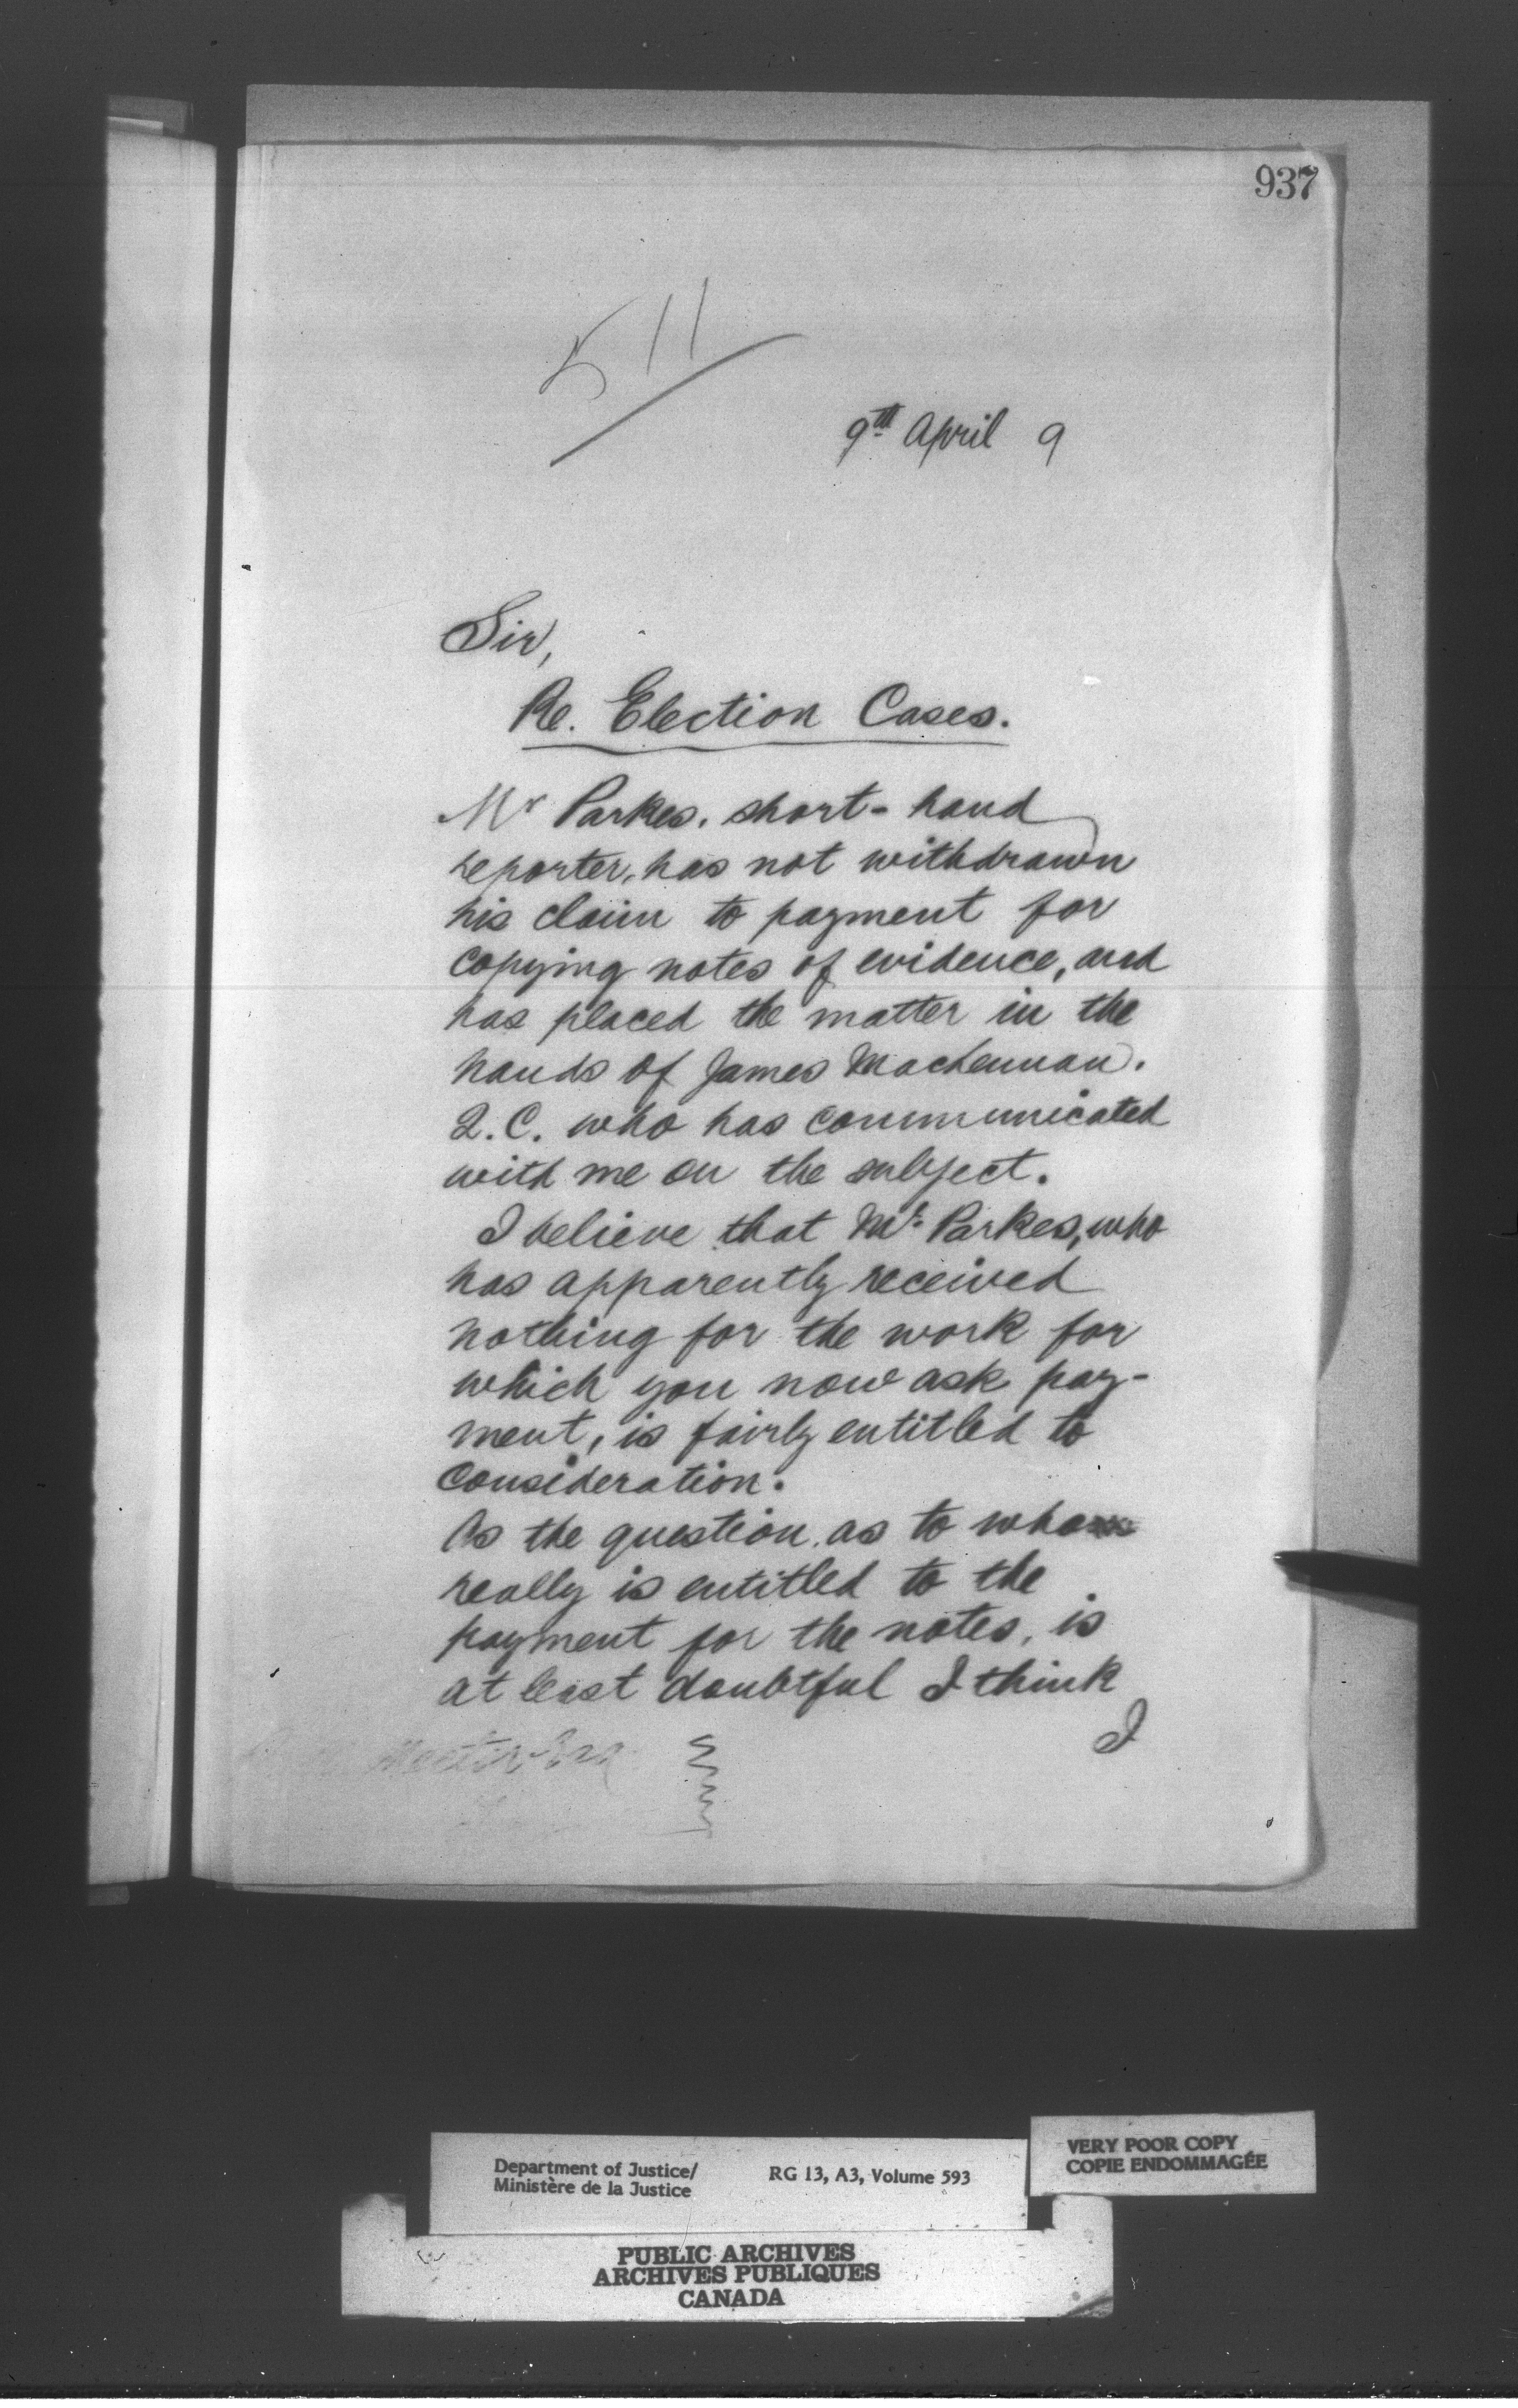 937
511
9th April 9
Sir,
Re. Election Cases.
Mr Parkes, short-hand
reporter, has not withdrawn
his claim to payment for
copying notes of evidence, and
has placed the matter in the
hands of James Maclennan.
Q.C. who has communicated
with me on the subject.
I believe that Mr. Parkes, who
has apparently received
nothing for the work for
which you now ask pay-
ment, is fairly entitled to
consideration.
As the question, as to who
really is entitled to the
payment for the notes, is
at least doubtful I think
I
VERY POOR COPY
COPIE ENDOMMAGÉE
Department of Justice/ RG 13, A3, Volume 593
Ministère de la Justice
PUBLIC ARCHIVES
ARCHIVES PUBLIQUES
CANADA